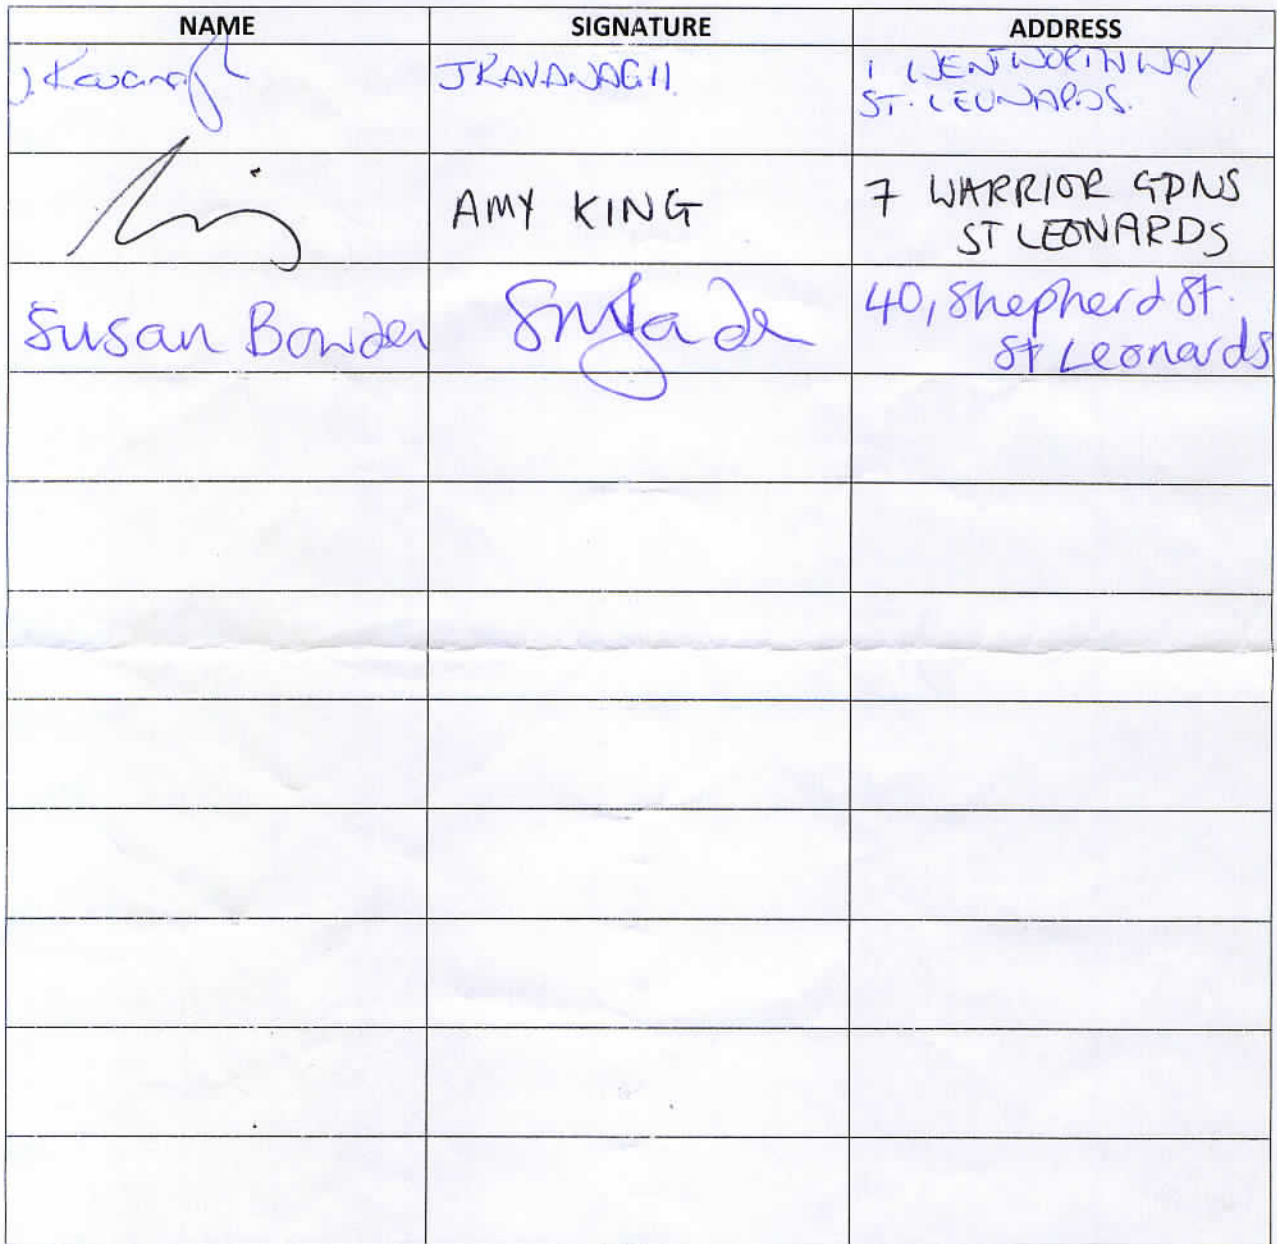 NAME SIGNATURE ADDRESS
J Kavanagh JKAVANAGH 1 WENTWORTH WAY
ST. LEONARDS.
AMY KING 7 WARRIOR GDNS
ST LEONARDS
Susan Bowden 40, Shepherd St.
St Leonards